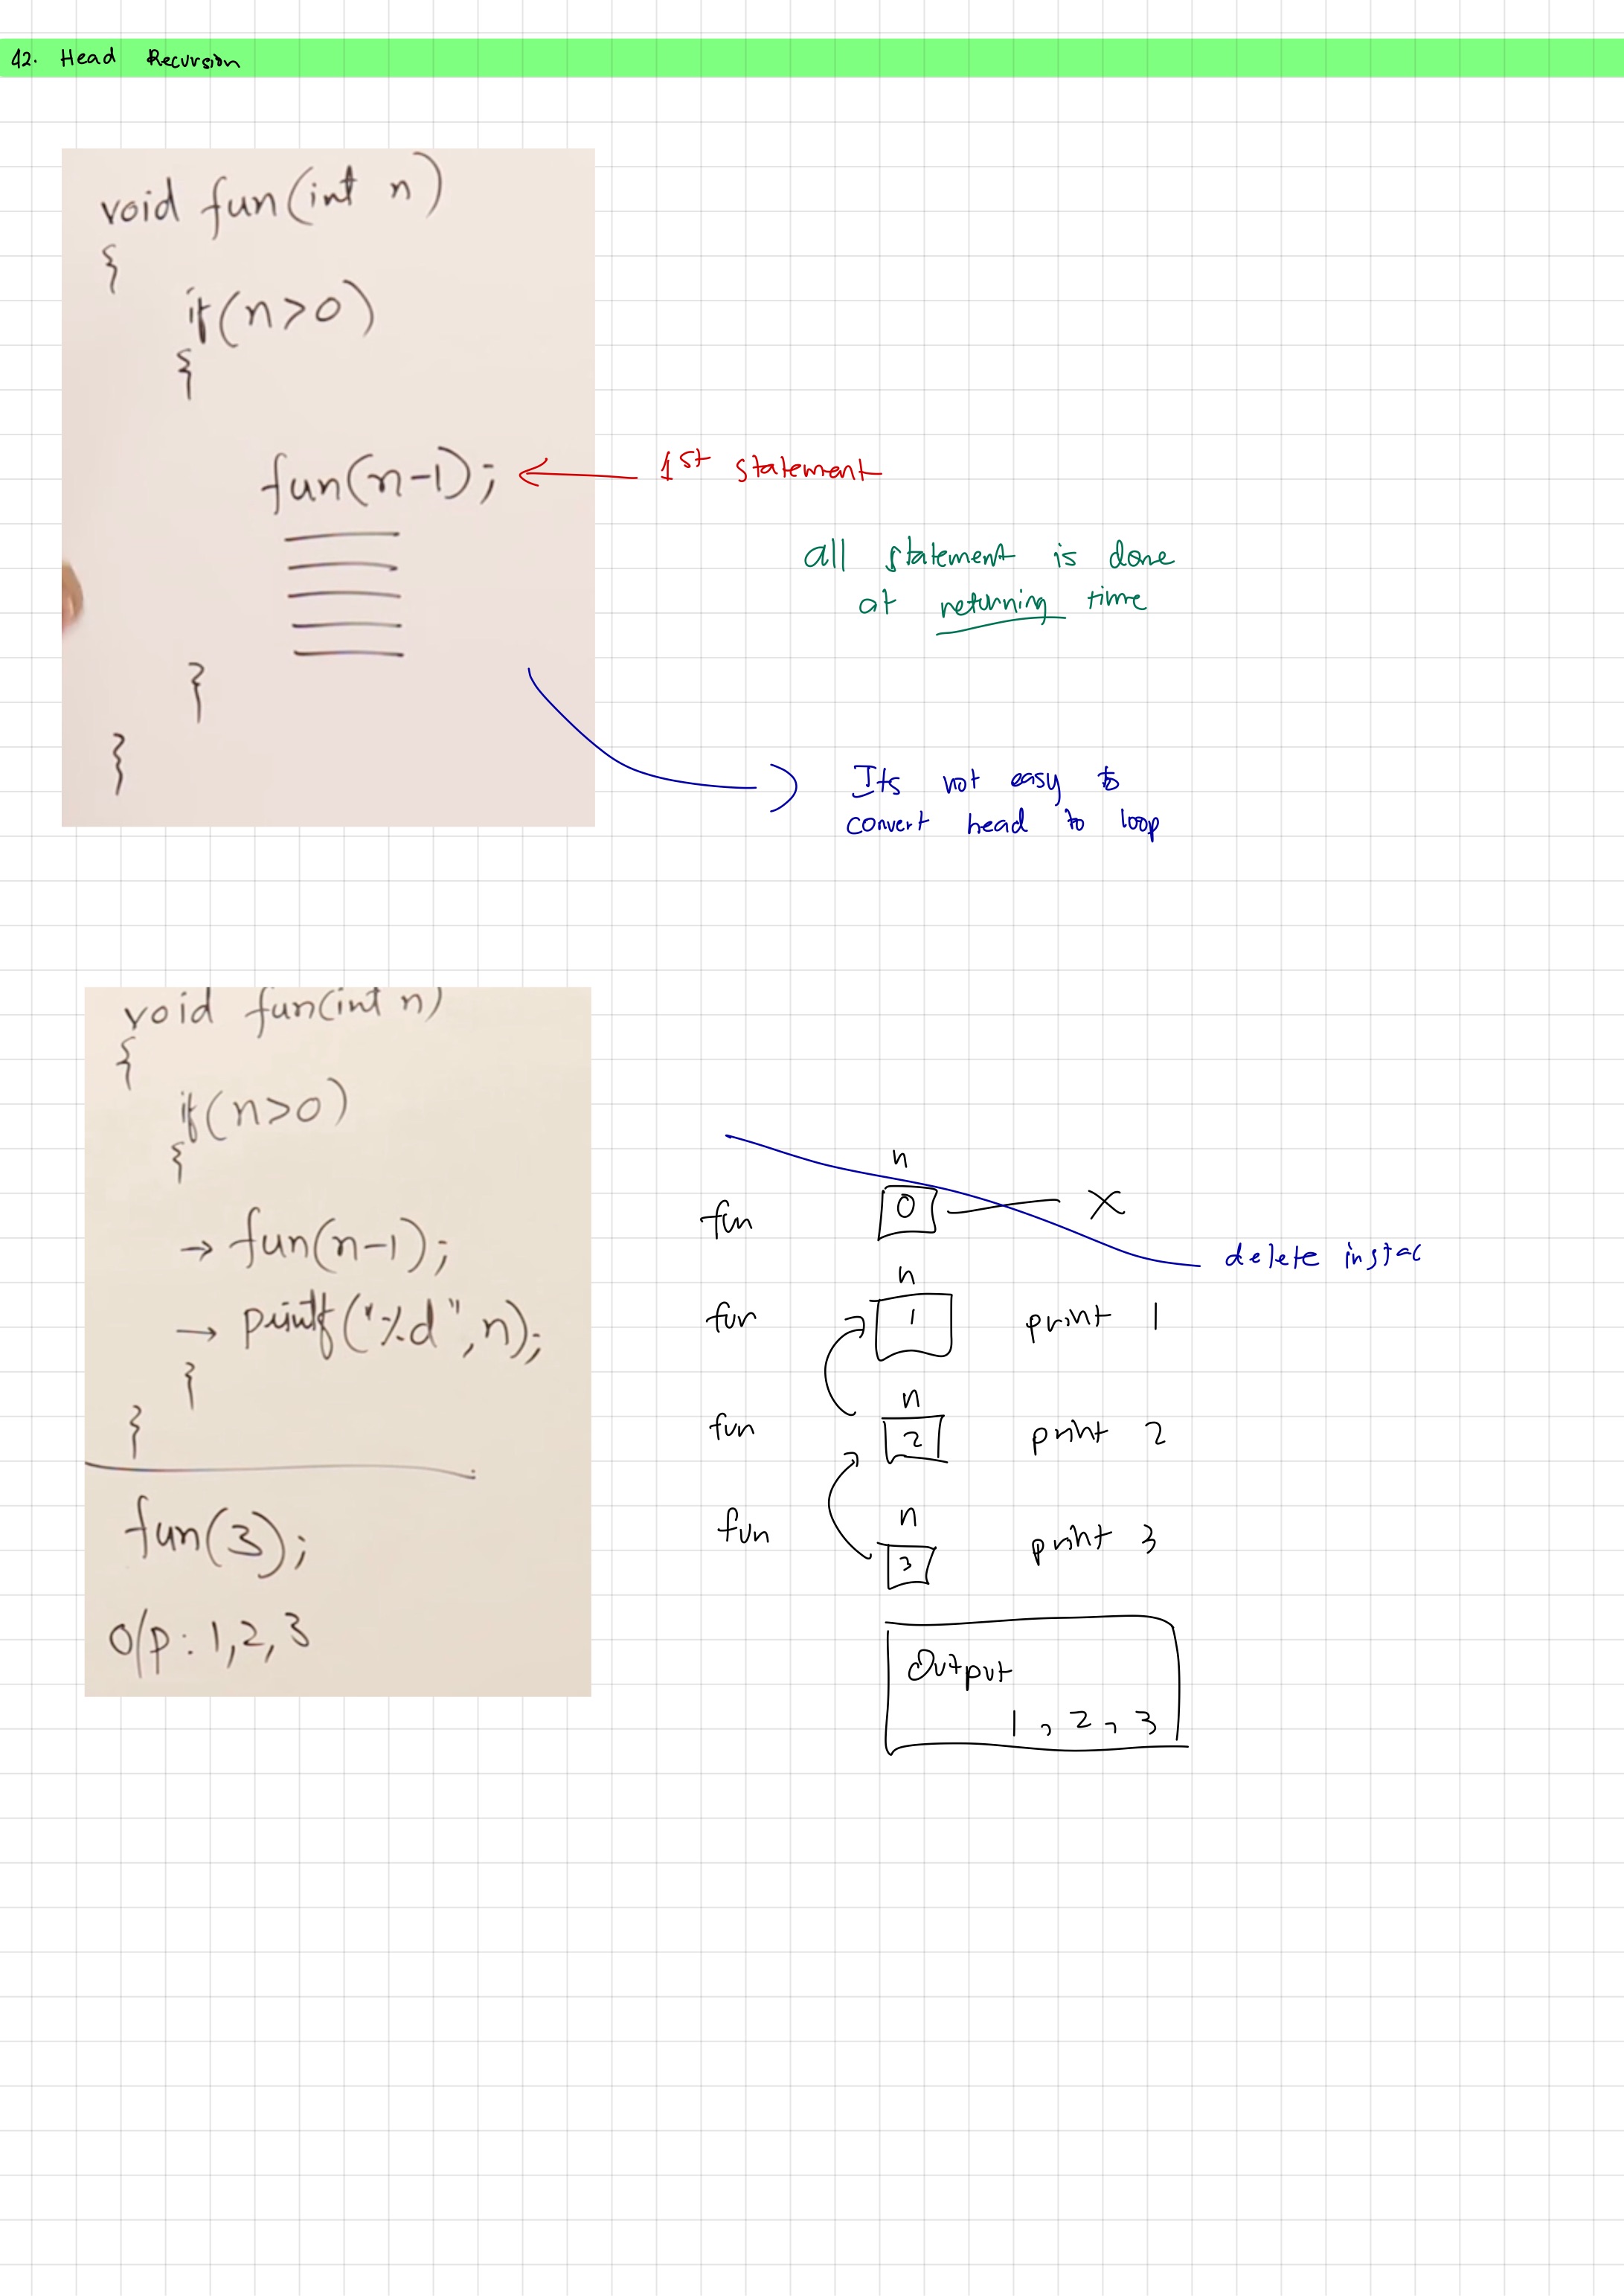 42. Head Recursion
void fun(int n)
{
if(n>0)
{
fun(n-1);
1st statement
all statement is done
at returning time
}
}
Its not easy to
convert head to loop
void fun(int n)
{
if(n>0)
{
→ fun(n-1);
→ printf("%d",n);
}
}
fun(3);
O/p: 1,2,3
n
fun 0 X
delete instac
n
fun 1 print 1
n
fun 2 print 2
n
fun 3 print 3
Output
1, 2, 3